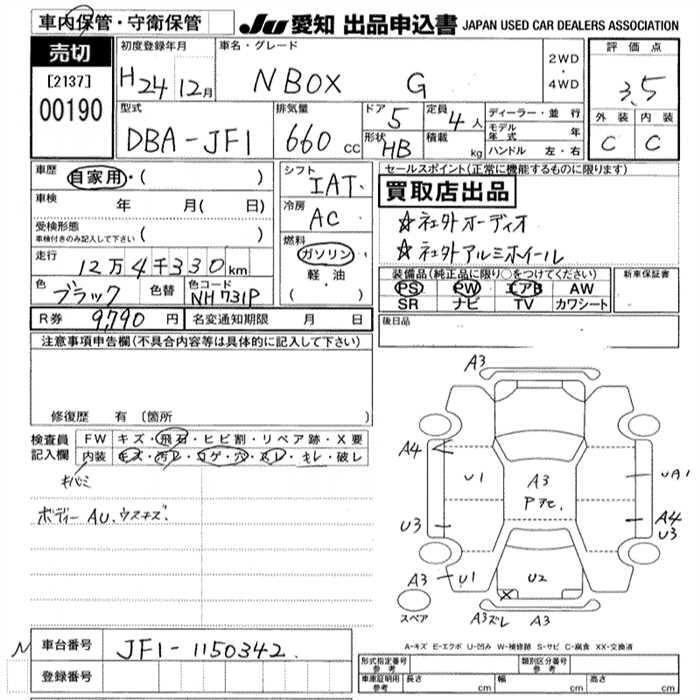 車内保管・守衛保管
JU 愛知 出品申込書 JAPAN USED CAR DEALERS ASSOCIATION
売切
[2137]
00190
初度登録年月
H24 12月
車名・グレード
N BOX G
2WD
・
4WD
評価点
3.5
外装 内装
C C
型式
DBA-JF1
排気量
660 cc
ドア 5
形状 HB
定員 4 人
積載 kg
ディーラー・並行
モデル年式 年
ハンドル 左・右
車歴 自家用・( )
車検 年 月( 日)
受検形態
車検付きのみ記入して下さい ( )
走行 12万4千330km
色 ブラック 色替 色コード NH731P
シフト
IAT
冷房
AC
燃料
ガソリン・
軽油
( ・ )
セールスポイント(正常に機能するものに限ります)
買取店出品
☆社外オーディオ
☆社外アルミホイール
装備品(純正品に限り○をつけてください)
PS PW エアB AW
SR ナビ TV カワシート
新車保証書
後日品
R券 9,790 円 名変通知期限 月 日
注意事項申告欄(不具合内容等は具体的に記入して下さい)
修復歴 有 〔箇所 〕
検査員 FW キズ・飛石・ヒビ割・リペア跡・X要
記入欄 内装 キズ・汚レ・コゲ・穴・スレ・キレ・破レ
キバミ
ボディーAU.ウスキズ.
A3
A4
U1
A3
UA1
U3
A4
U3
A3
U1
U2
X
スペア
A3ズレ A3
A-キズ E-エクボ U-凹み W-補修跡 S-サビ C-腐食 XX-交換済
N 車台番号 JF1-1150342
登録番号
形式指定番号 参考
類別区分番号 参考
車庫証明用 参考 長さ cm 幅 cm 高さ cm